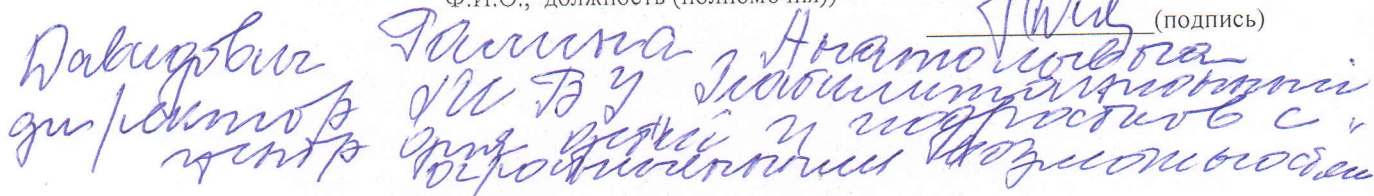 Ф.И.О., должность (полномочия))
(подпись)
Давидович Галина Анатольевна
директор ГКБУ Реабилитационный
центр для детей и подростков с
ограниченными возможностями